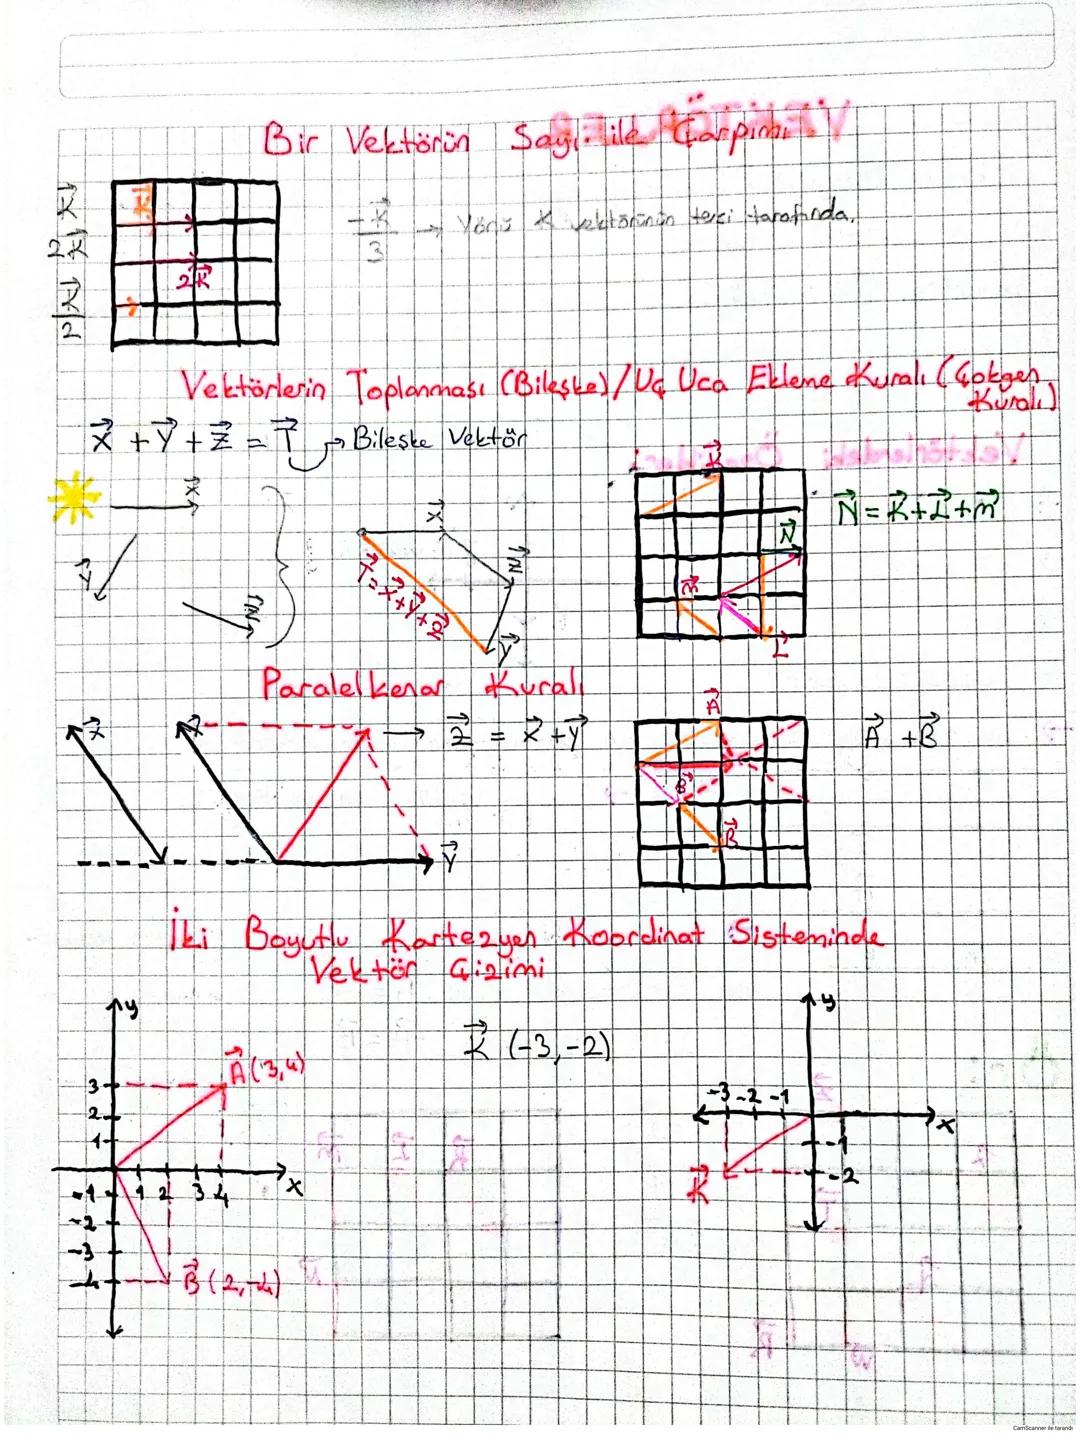 Bir Vektörün Sayı ile Çarpımı
K
2K
K
2
K
2K
-K
3
→ Yönü K vektörünün tersi tarafında.
Vektörlerin Toplanması (Bileşke) / Uç Uca Ekleme Kuralı (Çokgen Kuralı)
X + Y + Z = T → Bileşke Vektör
X
Y
Z
X
Z
Y
T = X + Y + Z
K
N
m
L
N = K + L + m
Paralelkenar Kuralı
X
X
→ Z = X + Y
Y
A
B
B
A + B
İki Boyutlu Kartezyen Koordinat Sisteminde
Vektör Çizimi
y
A (3,4)
3
2
1
-1
-2
-3
-4
1 2 3 4
x
B (2,-4)
K (-3,-2)
y
-3 -2 -1
x
-1
-2
K
CamScanner ile tarandı